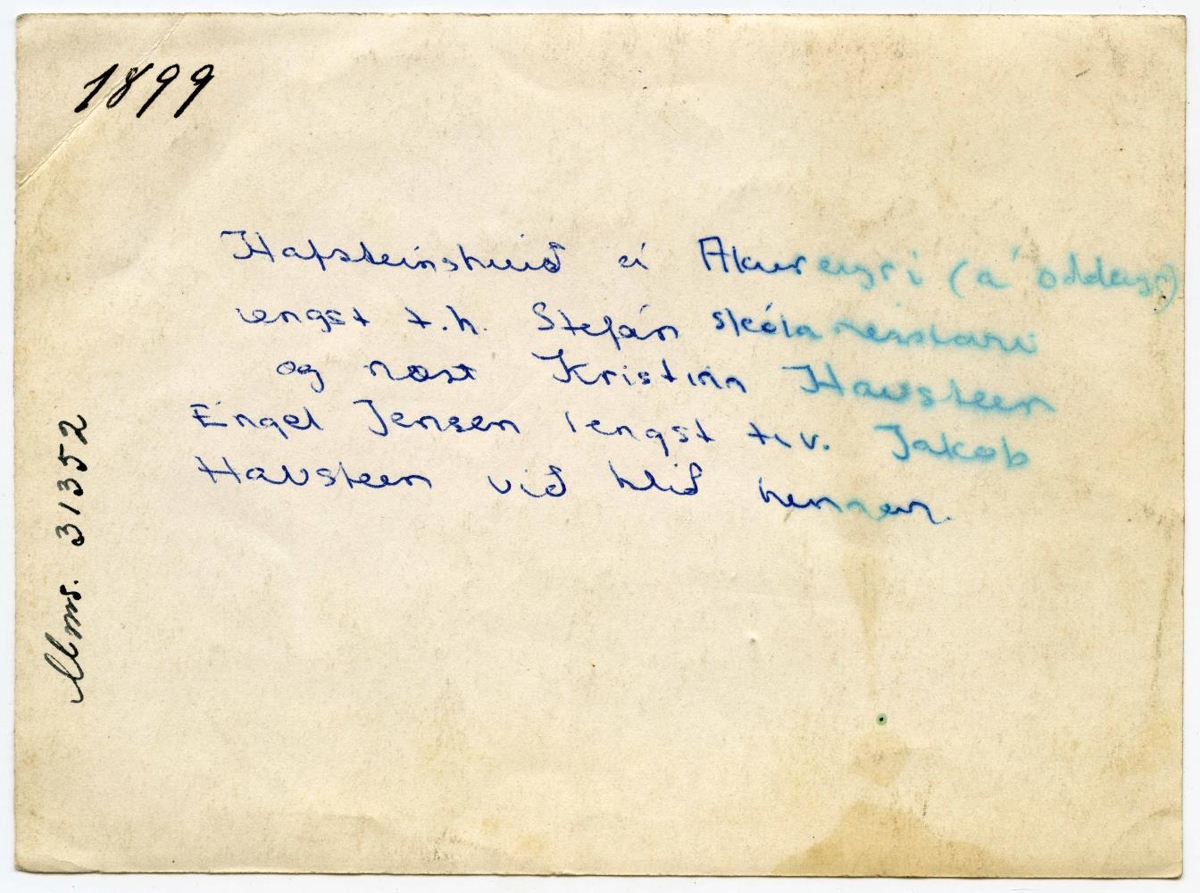 1899
Hafsteinshúsið á Akureyri (á oddeyri)
lengst t.h. Stefán skólameistari
og næst Kristinn Havsteen
Engel Jensen lengst t.v. Jakob
Havsteen við hlið hennar.
Mms. 31352